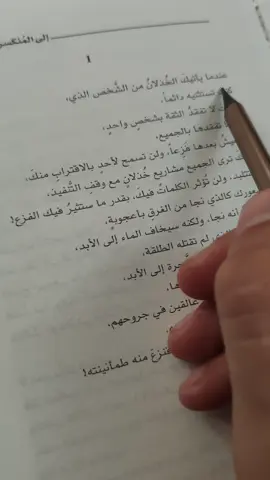 إلى المنكسر
I
عندما يأتيك الخذلان من الشخص الذي،
تستثنيه دائماً.
لا تفقد الثقة بشخصٍ واحدٍ،
تفقدها بالجميع.
بعدها فزعاً، ولن تسمح لأحدٍ بالاقتراب منك.
ترى الجميع مشاريع خُذلان مع وقف التنفيذ.
ولن تؤثر الكلمات فيك، بقدر ما ستثير فيك الفزع!
كالذي نجا من الغرق بأعجوبة،
أنه نجا، ولكنه سيخاف الماء إلى الأبد.
لم تقتله الطلقة.
إلى الأبد.
عالقين في جروحهم.
منه طمأنينته!